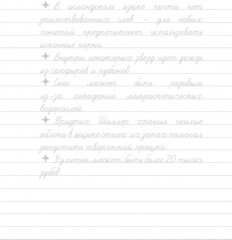 ✦ В исландском языке почти нет
заимствованных слов – для новых
понятий предпочитают использовать
исконные корни.
✦ Внутри некоторых звезд идет дождь
из сапфиров и рубинов.
✦ Снег может быть розовым
из-за попадания микроскопических
водорослей.
✦ Фридрих Шиллер хранил гнилые
яблоки в ящике стола: их запах помогал
запустить творческий процесс.
✦ У улиток может быть более 20 тысяч
зубов.